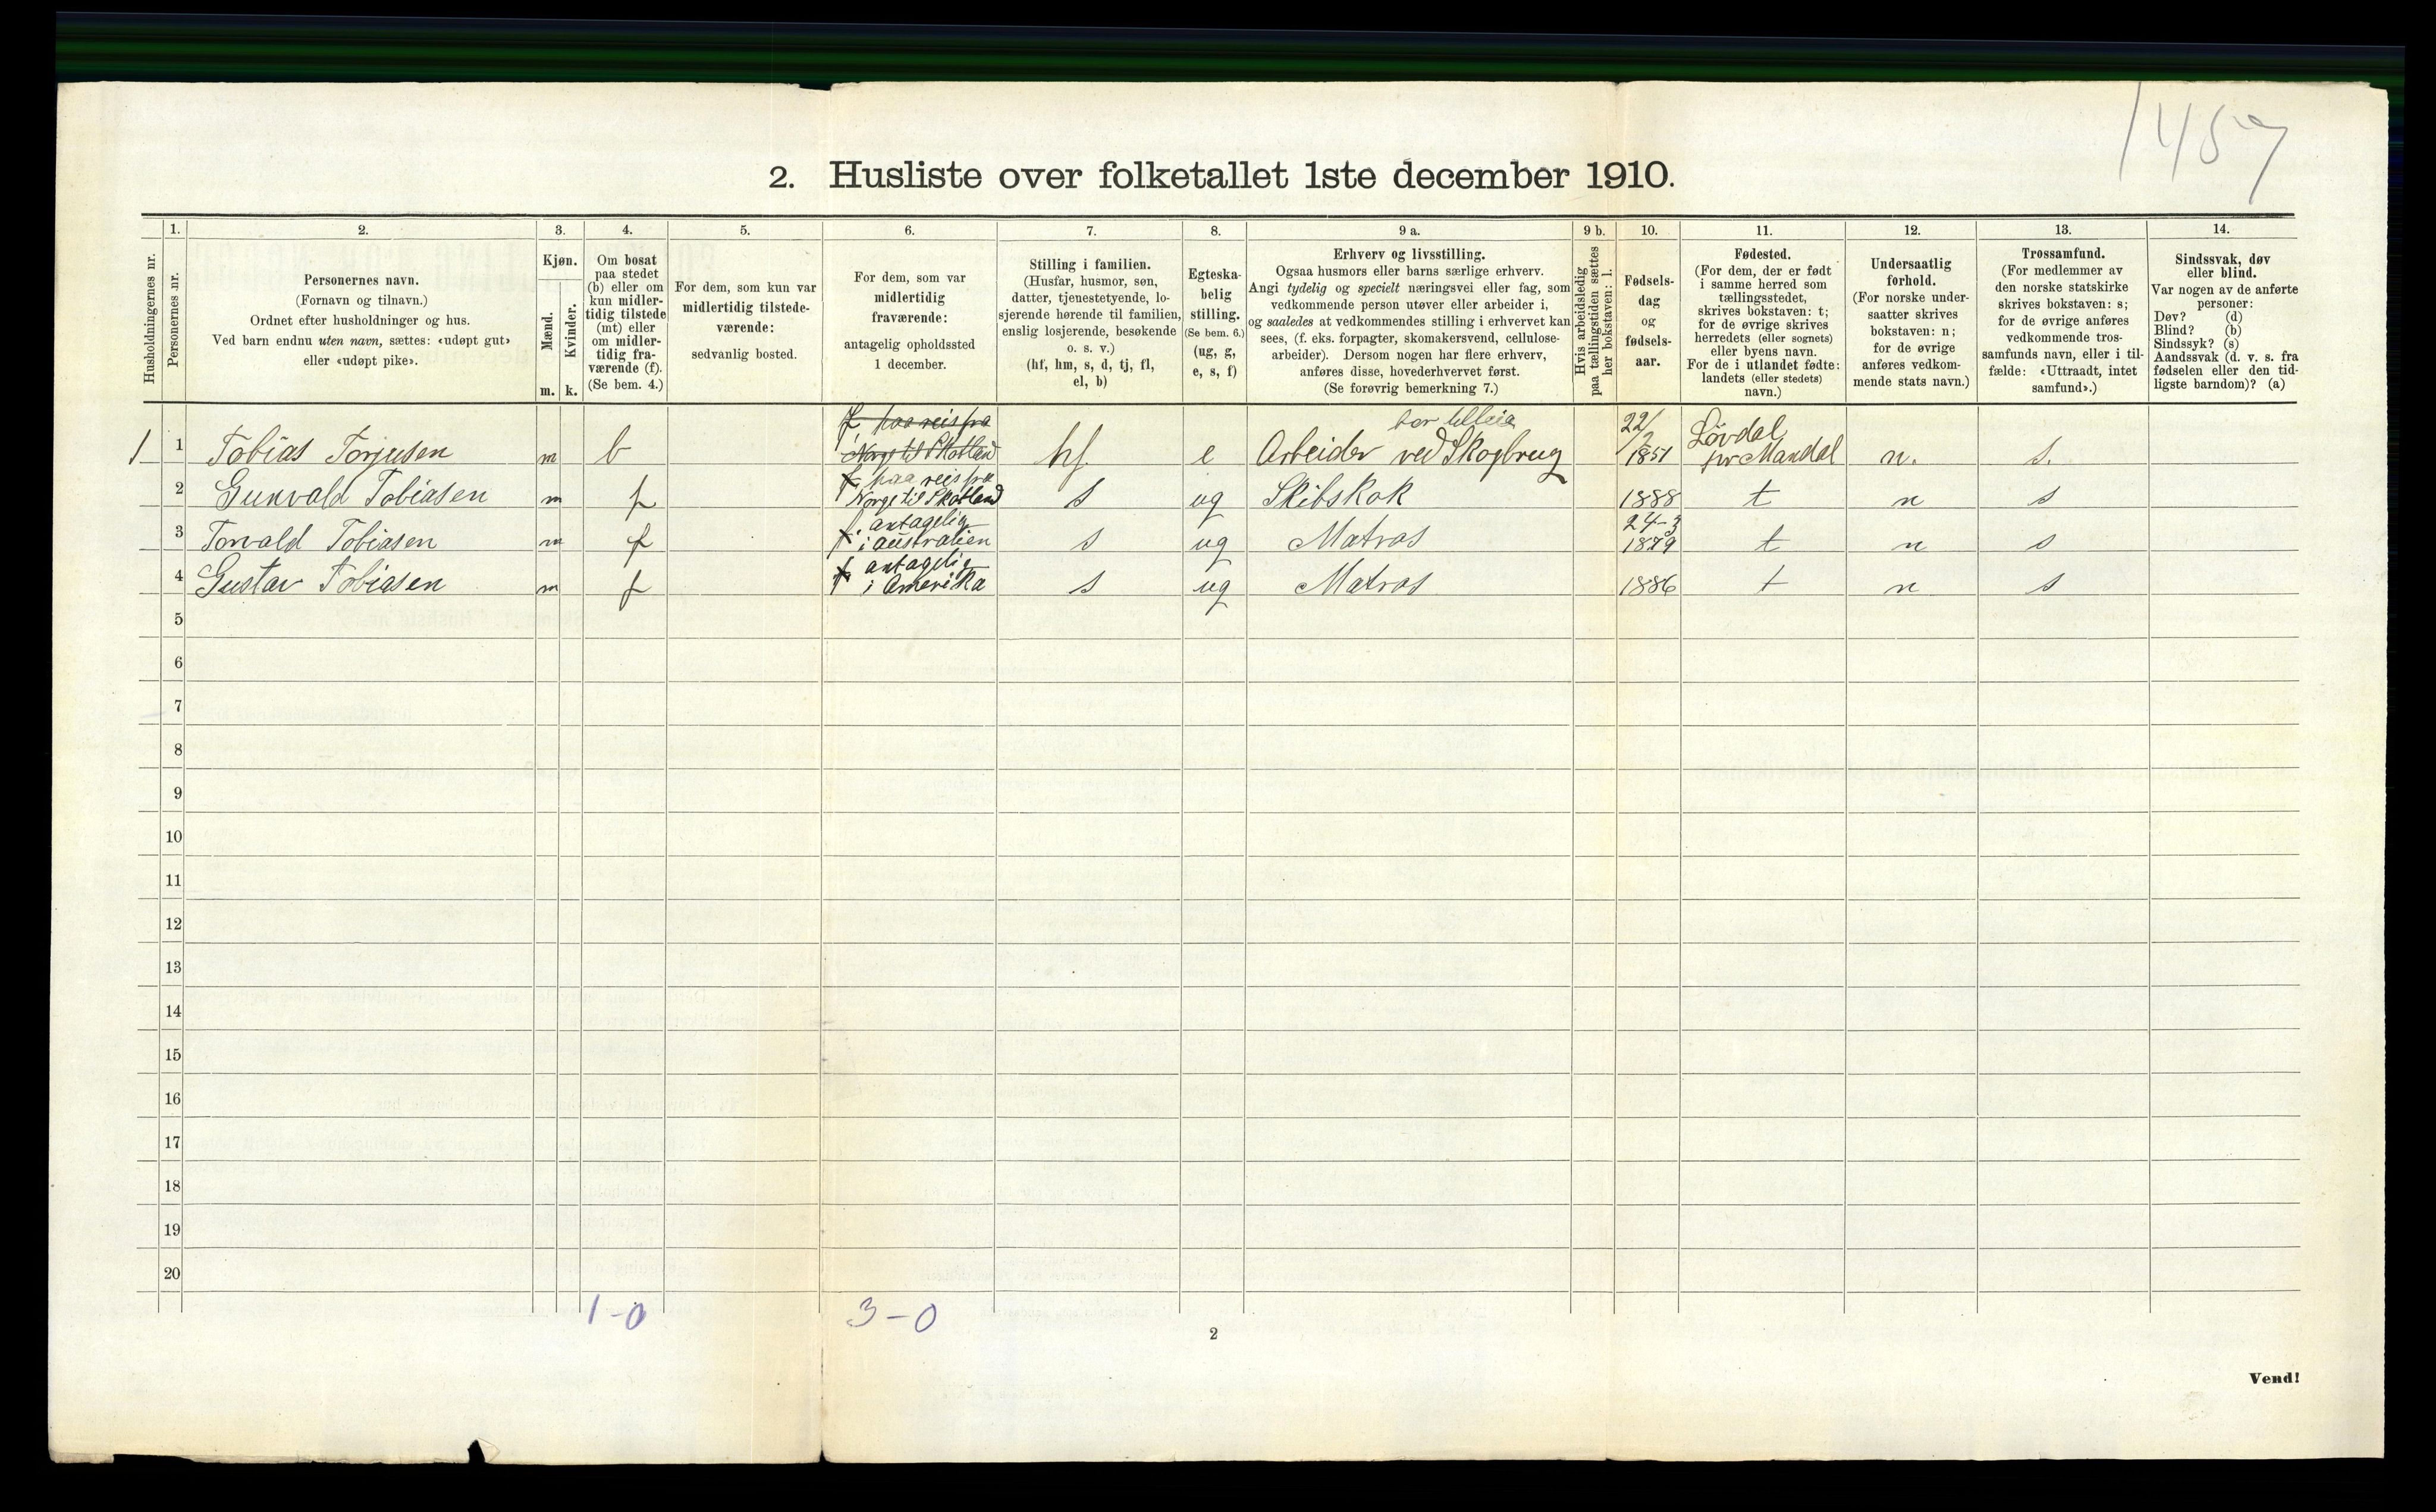 1457
2. Husliste over folketallet 1ste december 1910.
Husholdningernes nr.
1.
Personernes nr.
2.
Personernes navn.
(Fornavn og tilnavn.)
Ordnet efter husholdninger og hus.
Ved barn endnu uten navn, sættes: «udøpt gut»
eller «udøpt pike».
3.
Kjøn.
Mænd.
Kvinder.
m. k.
4.
Om bosat
paa stedet
(b) eller om
kun midler-
tidig tilstede
(mt) eller
om midler-
tidig fra-
værende (f).
(Se bem. 4.)
5.
For dem, som kun var
midlertidig tilstede-
værende:
sedvanlig bosted.
6.
For dem, som var
midlertidig
fraværende:
antagelig opholdssted
1 december.
7.
Stilling i familien.
(Husfar, husmor, søn,
datter, tjenestetyende, lo-
sjerende hørende til familien,
enslig losjerende, besøkende
o. s. v.)
(hf, hm, s, d, tj, fl,
el, b)
8.
Egteska-
belig
stilling.
(Se bem. 6.)
(ug, g,
e, s, f)
9 a.
Erhverv og livsstilling.
Ogsaa husmors eller barns særlige erhverv.
Angi tydelig og specielt næringsvei eller fag, som
vedkommende person utøver eller arbeider i,
og saaledes at vedkommendes stilling i erhvervet kan
sees, (f. eks. forpagter, skomakersvend, cellulose-
arbeider). Dersom nogen har flere erhverv,
anføres disse, hovederhvervet først.
(Se forøvrig bemerkning 7.)
9 b.
Hvis arbeidsledig
paa tællingstiden sættes
her bokstaven: l.
10.
Fødsels-
dag
og
fødsels-
aar.
11.
Fødested.
(For dem, der er født
i samme herred som
tællingsstedet,
skrives bokstaven: t;
for de øvrige skrives
herredets (eller sognets)
eller byens navn.
For de i utlandet fødte:
landets (eller stedets)
navn.)
12.
Undersaatlig
forhold.
(For norske under-
saatter skrives
bokstaven: n;
for de øvrige
anføres vedkom-
mende stats navn.)
13.
Trossamfund.
(For medlemmer av
den norske statskirke
skrives bokstaven: s;
for de øvrige anføres
vedkommende tros-
samfunds navn, eller i til-
fælde: «Uttraadt, intet
samfund».)
14.
Sindssvak, døv
eller blind.
Var nogen av de anførte
personer:
Døv? (d)
Blind? (b)
Sindssyk? (s)
Aandssvak (d. v. s. fra
fødselen eller den tid-
ligste barndom)? (a)
f paa reis fra 22/
1 1 Tobias Torjusen m b Norge til Skotland hf. e Arbeider ved Skogbrug 1851 Lövdal n. s.
pr Mandal
f paa reis fra
2 Gunvald Tobiasen m f Norge til Skotland s ug Skibskok 1888 t n s
f. antagelig 24-3
3 Torvald Tobiasen m f i Australien s ug Matros 1879 t n s
f antagelig
4 Gustav Tobiasen m f i Amerika s ug Matros 1886 t n s
5
6
7
8
9
10
11
12
13
14
15
16
17
18
19
20
1-0 3-0
2
Vend!